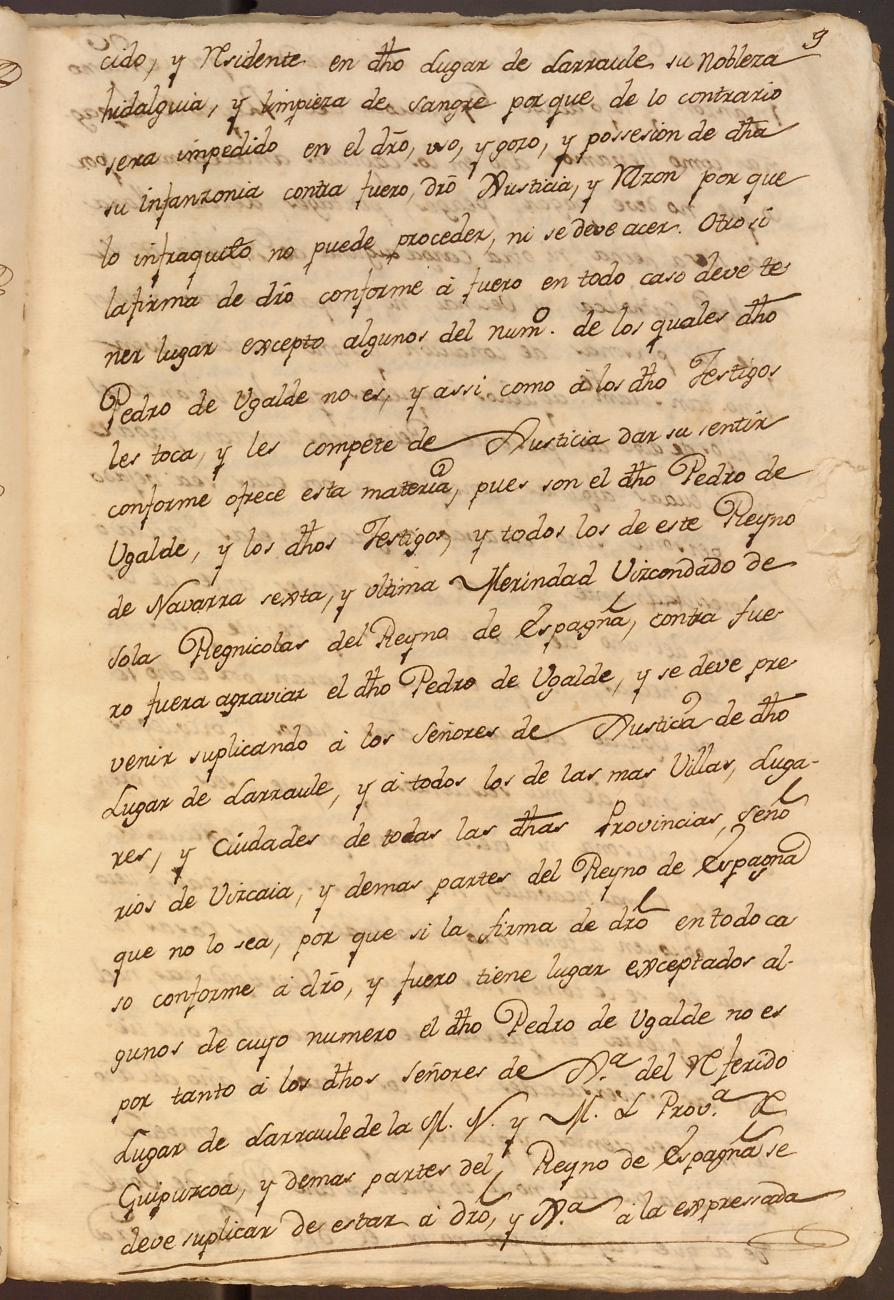 9
cido, y Residente en dho Lugar de Larraule su Nobleza
hidalguia, y limpieza de sangre porque de lo contrario
sera impedido en el dro, uso, y gozo, y possesion de dha
su infanzonia contra fuero, dro Justicia, y Rzon por que
lo infraquito no puede proceder, ni se deve acer. Otro si
la firma de dro conforme à fuero en todo caso deve te
ner lugar excepto algunos del numo. de los quales dho
Pedro de Ugalde no es, y assi como à los dho Testigos
les toca, y les compete de Justicia dar su sentir
conforme ofrece esta materia, pues son el dho Pedro de
Ugalde, y los dhos Testigos, y todos los de este Reyno
de Navarra sexta, y ultima Merindad Vizcondado de
sola Regnicolas del Reyno de Espagña, contra fue
ro fuera agraviar el dho Pedro de Ugalde, y se deve pre
venir suplicando à los Señores de Justicia de dho
Lugar de Larraule, y à todos los de las mas Villas, Luga-
res, y Ciudades de todas las dhas Provincias, Seño
rios de Vizcaia, y demas partes del Reyno de Espagña
que no lo sea, por que si la firma de dro en todo ca
so conforme à dro, y fuero tiene lugar exceptados al-
gunos de cuyo numero el dho Pedro de Ugalde no es
por tanto à los dhos Señores de Ja. del Referido
Lugar de Larraule de la M. N. y M. L Prova. de
Guipuzcoa, y demas partes del Reyno de Espagña se
deve suplicar de estar à dro, y Ja. à la expressada